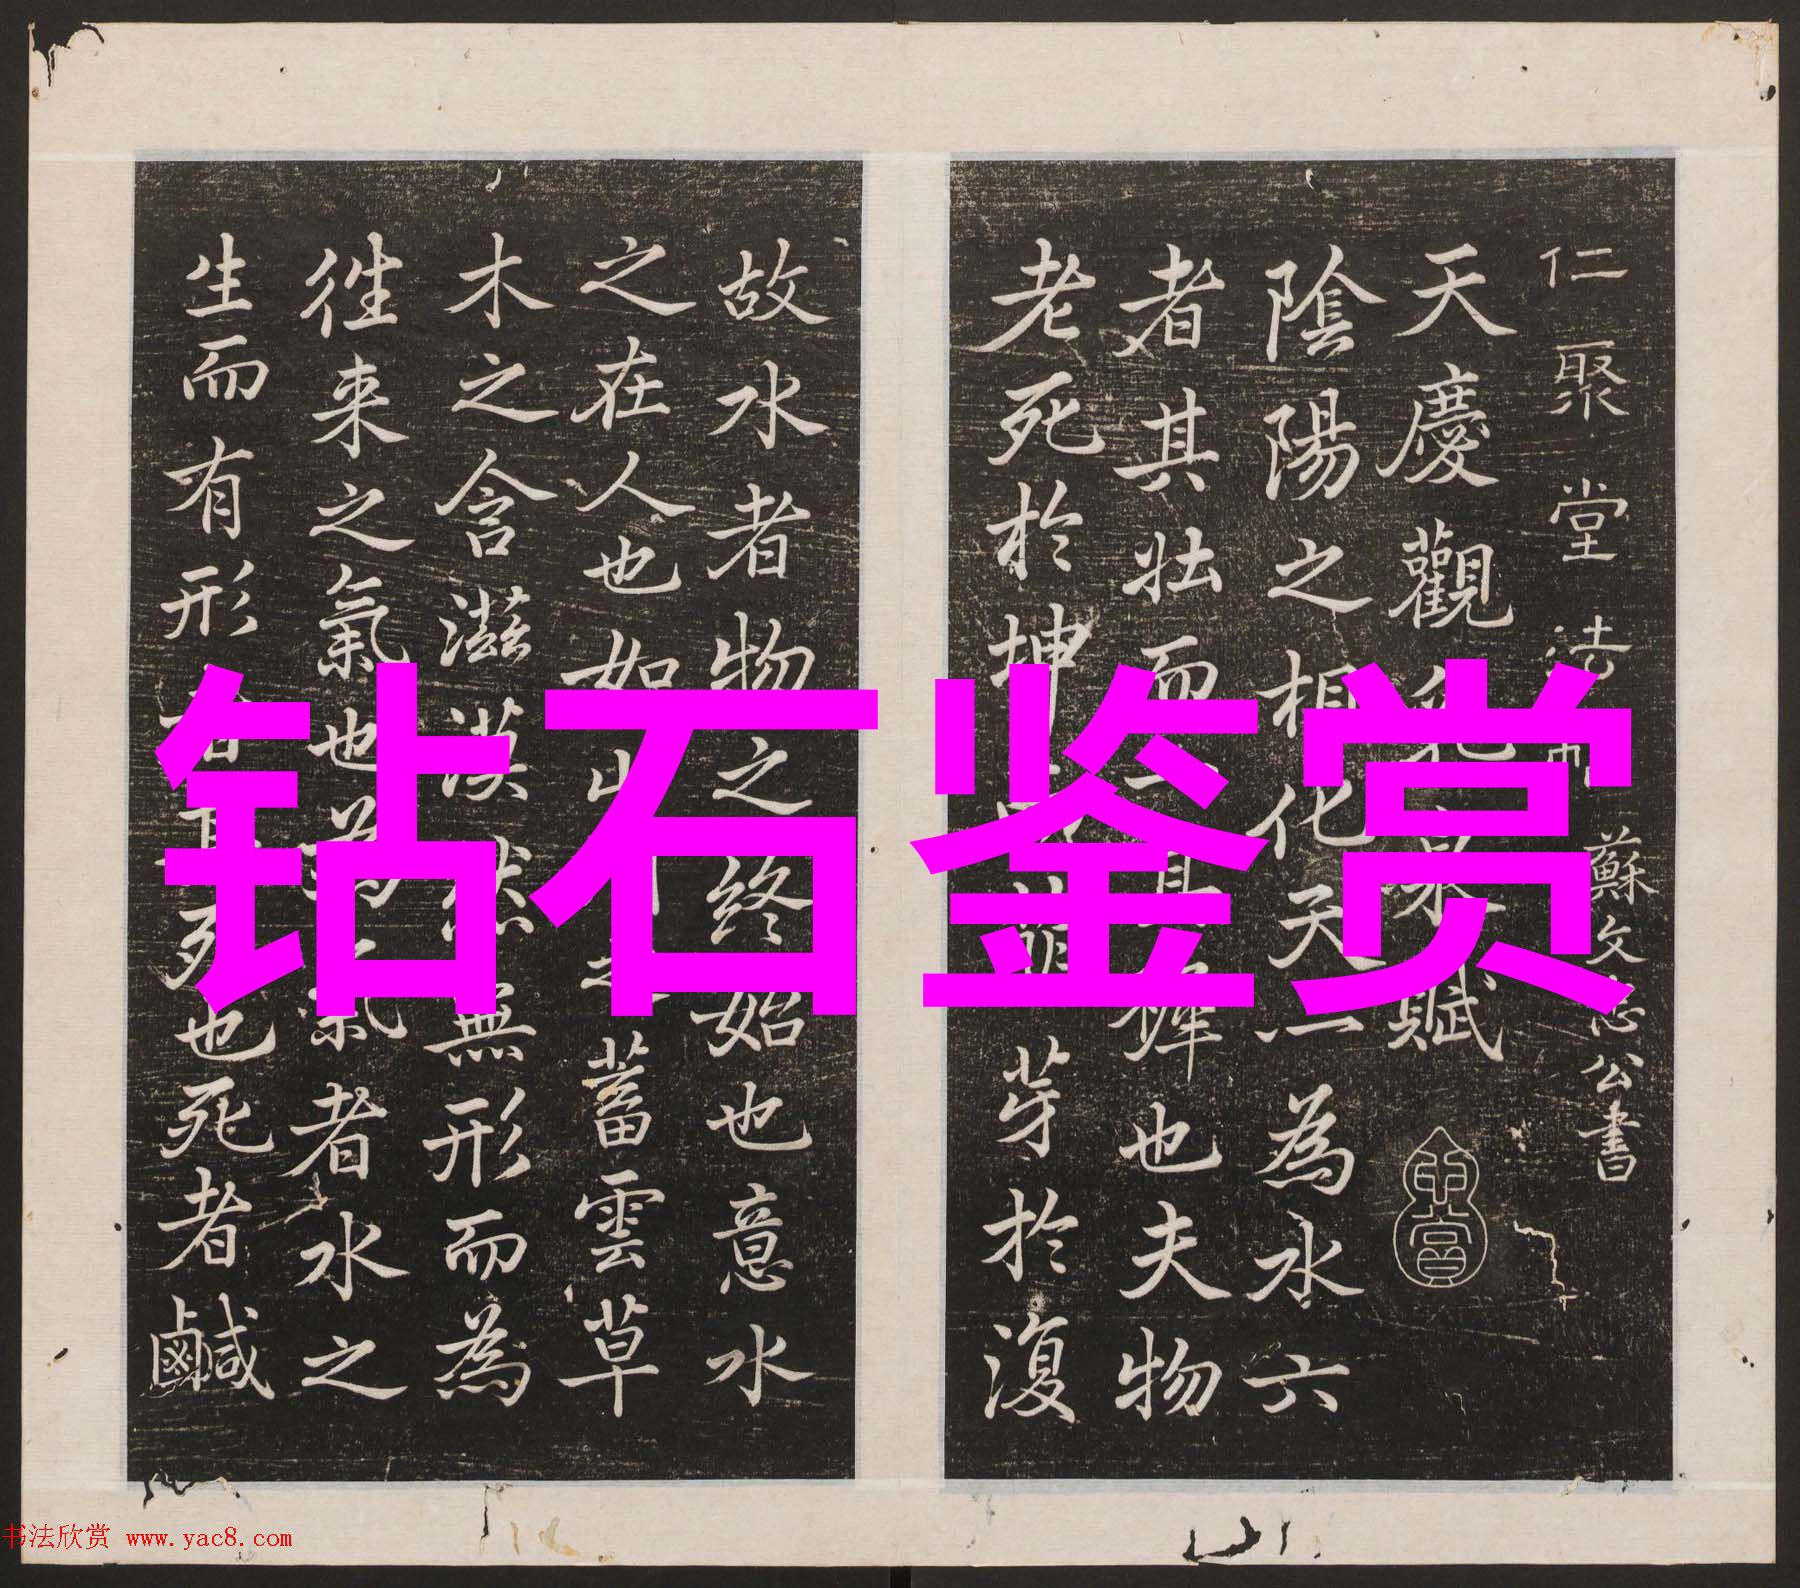 仁聚堂法帖 蘇文忠公書
天慶觀乳泉賦
陰陽之相化天一為水六
者其壮而一者其穉也夫物
老死於坤而萌芽於復
故水者物之終始也意水
之在人也如山川之蓄雲草
木之含滋漠然無形而為
徃来之氣也為氣者水之
生而有形者其死也死者鹹
钻石鉴赏
书法欣赏 www.yac8.com